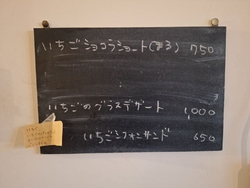 いちごショコラショート(まる) 750
いちごのグラスデザート 1,000
いちごシフォンサンド 650